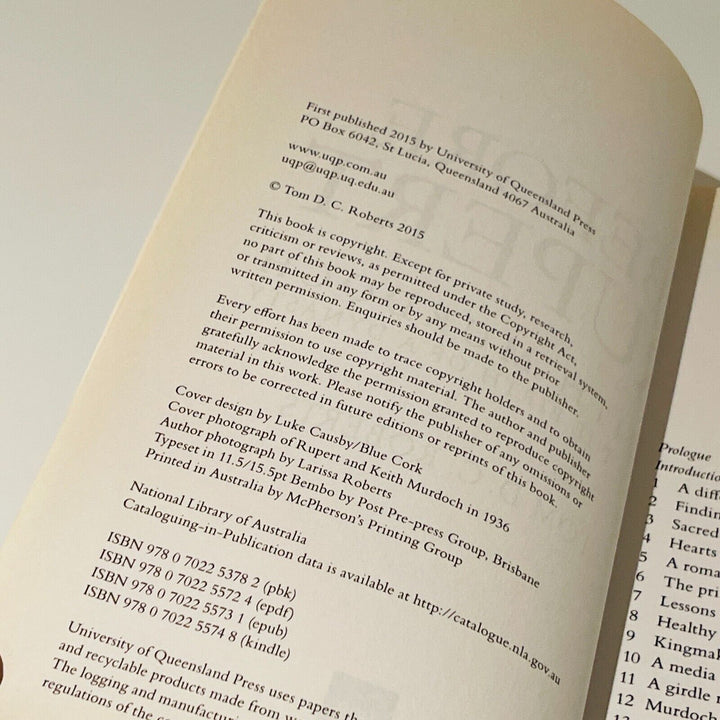 First published 2015 by University of Queensland Press
PO Box 6042, St Lucia, Queensland 4067 Australia
www.uqp.com.au
uqp@uqp.uq.edu.au
© Tom D. C. Roberts 2015
This book is copyright. Except for private study, research,
criticism or reviews, as permitted under the Copyright Act,
no part of this book may be reproduced, stored in a retrieval system,
or transmitted in any form or by any means without prior
written permission. Enquiries should be made to the publisher.
Every effort has been made to trace copyright holders and to obtain
their permission to use copyright material. The author and publisher
gratefully acknowledge the permission granted to reproduce copyright
material in this work. Please notify the publisher of any omissions or
errors to be corrected in future editions or reprints of this book.
Cover design by Luke Causby/Blue Cork
Cover photograph of Rupert and Keith Murdoch in 1936
Author photograph by Larissa Roberts
Typeset in 11.5/15.5pt Bembo by Post Pre-press Group, Brisbane
Printed in Australia by McPherson's Printing Group
National Library of Australia
Cataloguing-in-Publication data is available at http://catalogue.nla.gov.au
ISBN 978 0 7022 5378 2 (pbk)
ISBN 978 0 7022 5572 4 (epdf)
ISBN 978 0 7022 5573 1 (epub)
ISBN 978 0 7022 5574 8 (kindle)
University of Queensland Press uses papers th
and recyclable products made from w
The logging and manufactur
regulations of the
Prologue
Introductio
1 A diff
2 Findin
3 Sacred
4 Hearts
5 A roma
6 The pri
7 Lessons
8 Healthy
9 Kingmak
10 A media
11 A girdle
12 Murdoch